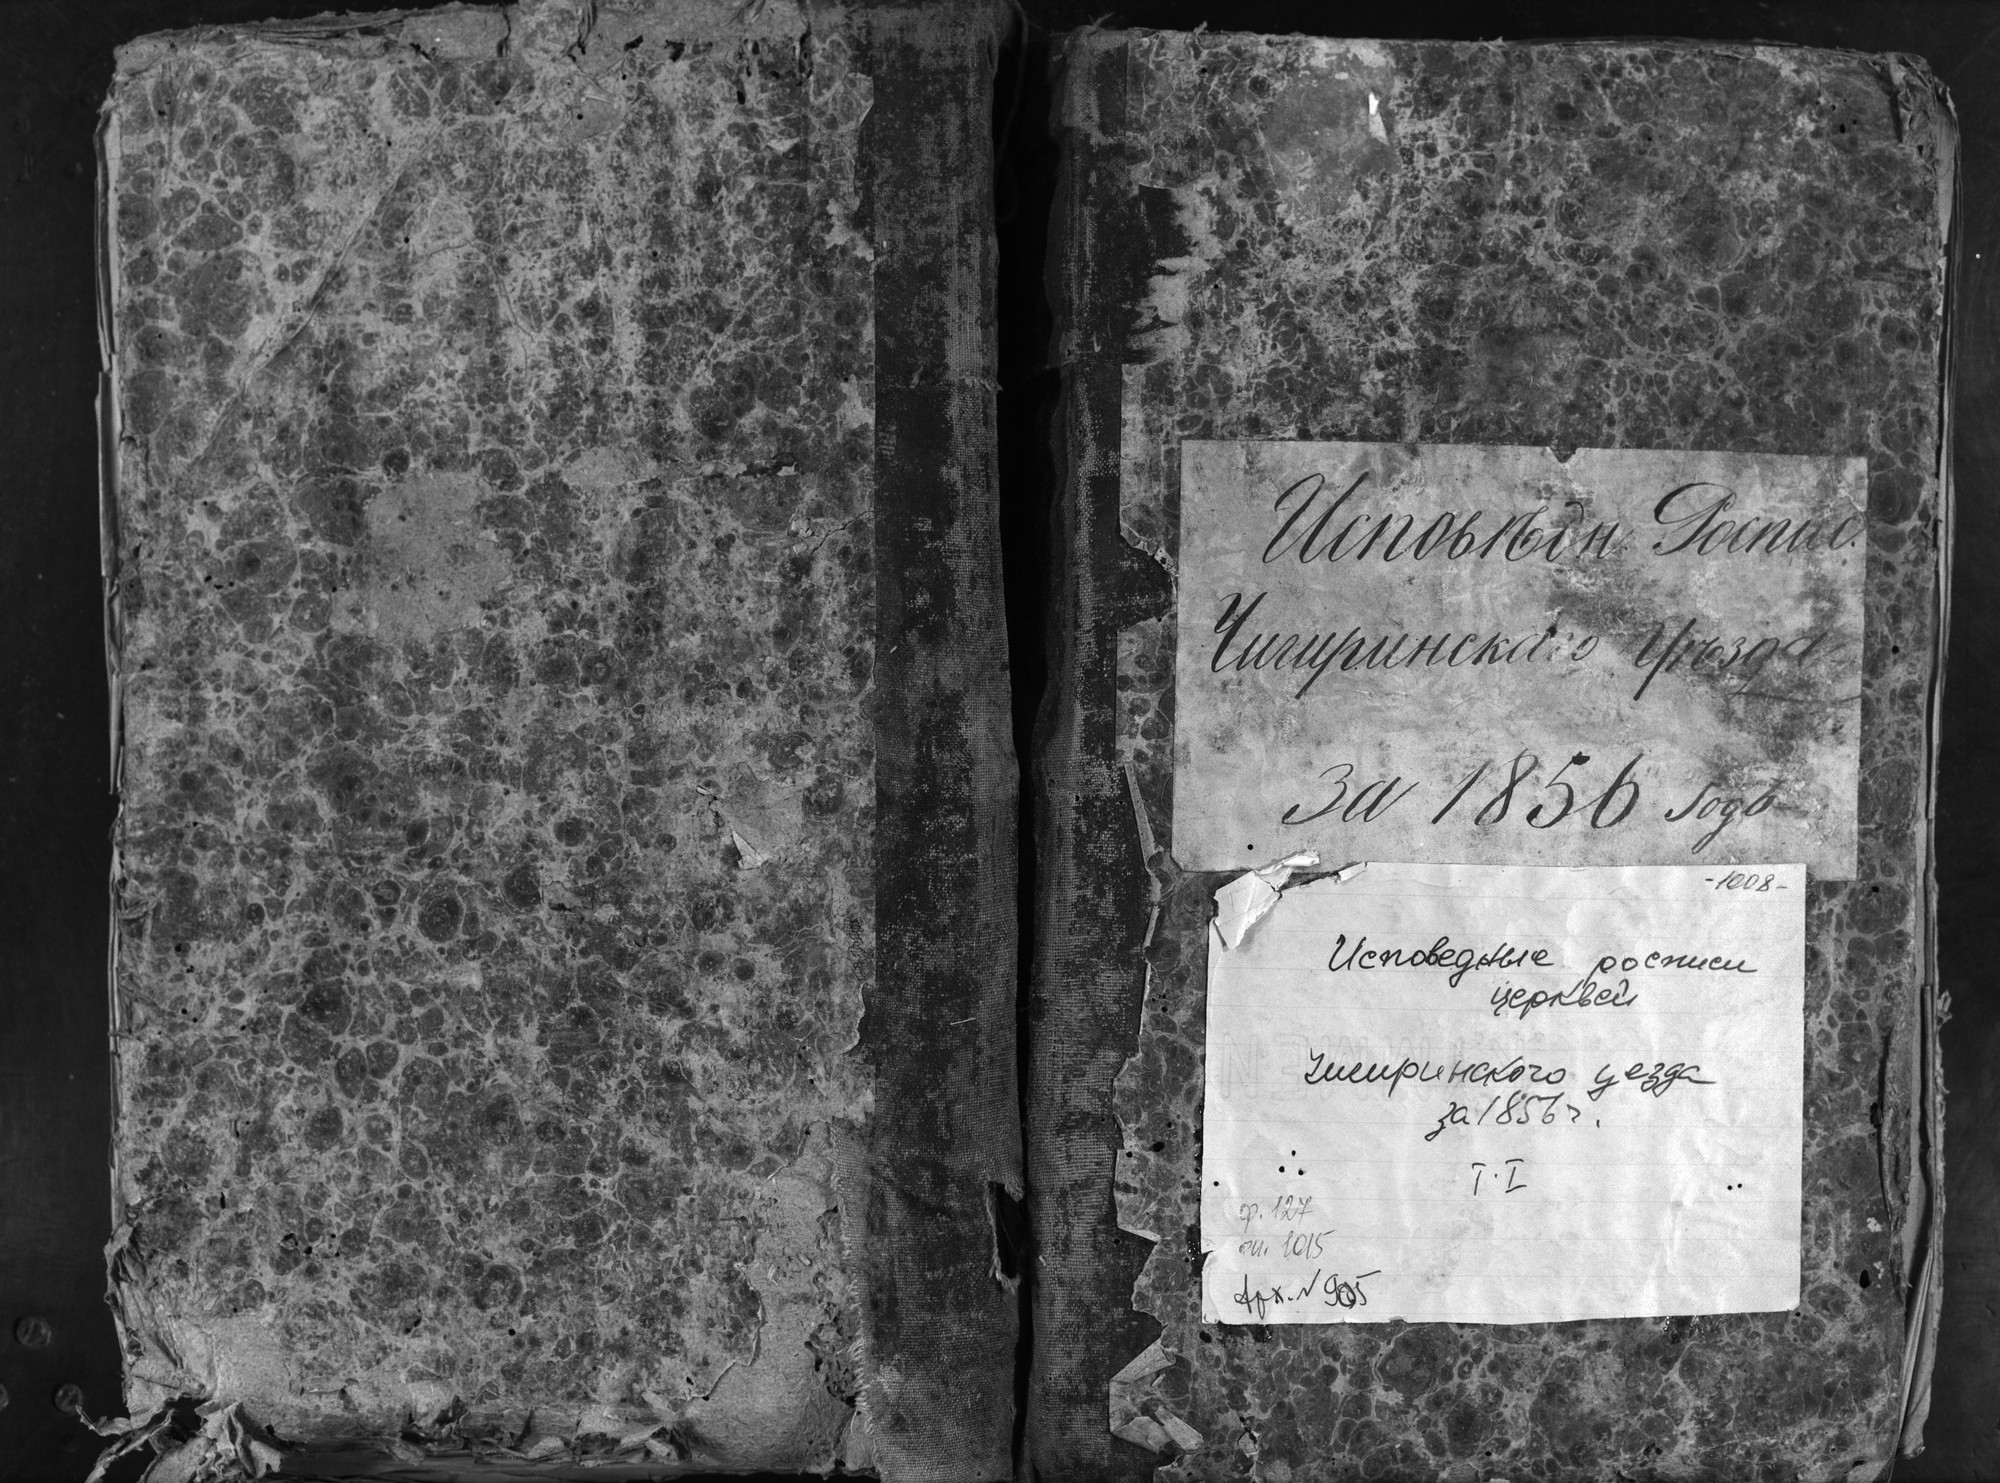 Исповѣдн. Роспис.
Чигиринскаго Уѣзда
за 1856 годъ
-1008-
Исповедные росписи
церквей
Чигиринского уезда
за 1856 г.
Т. I
ф. 127
оп. 1015
Арх. № 905